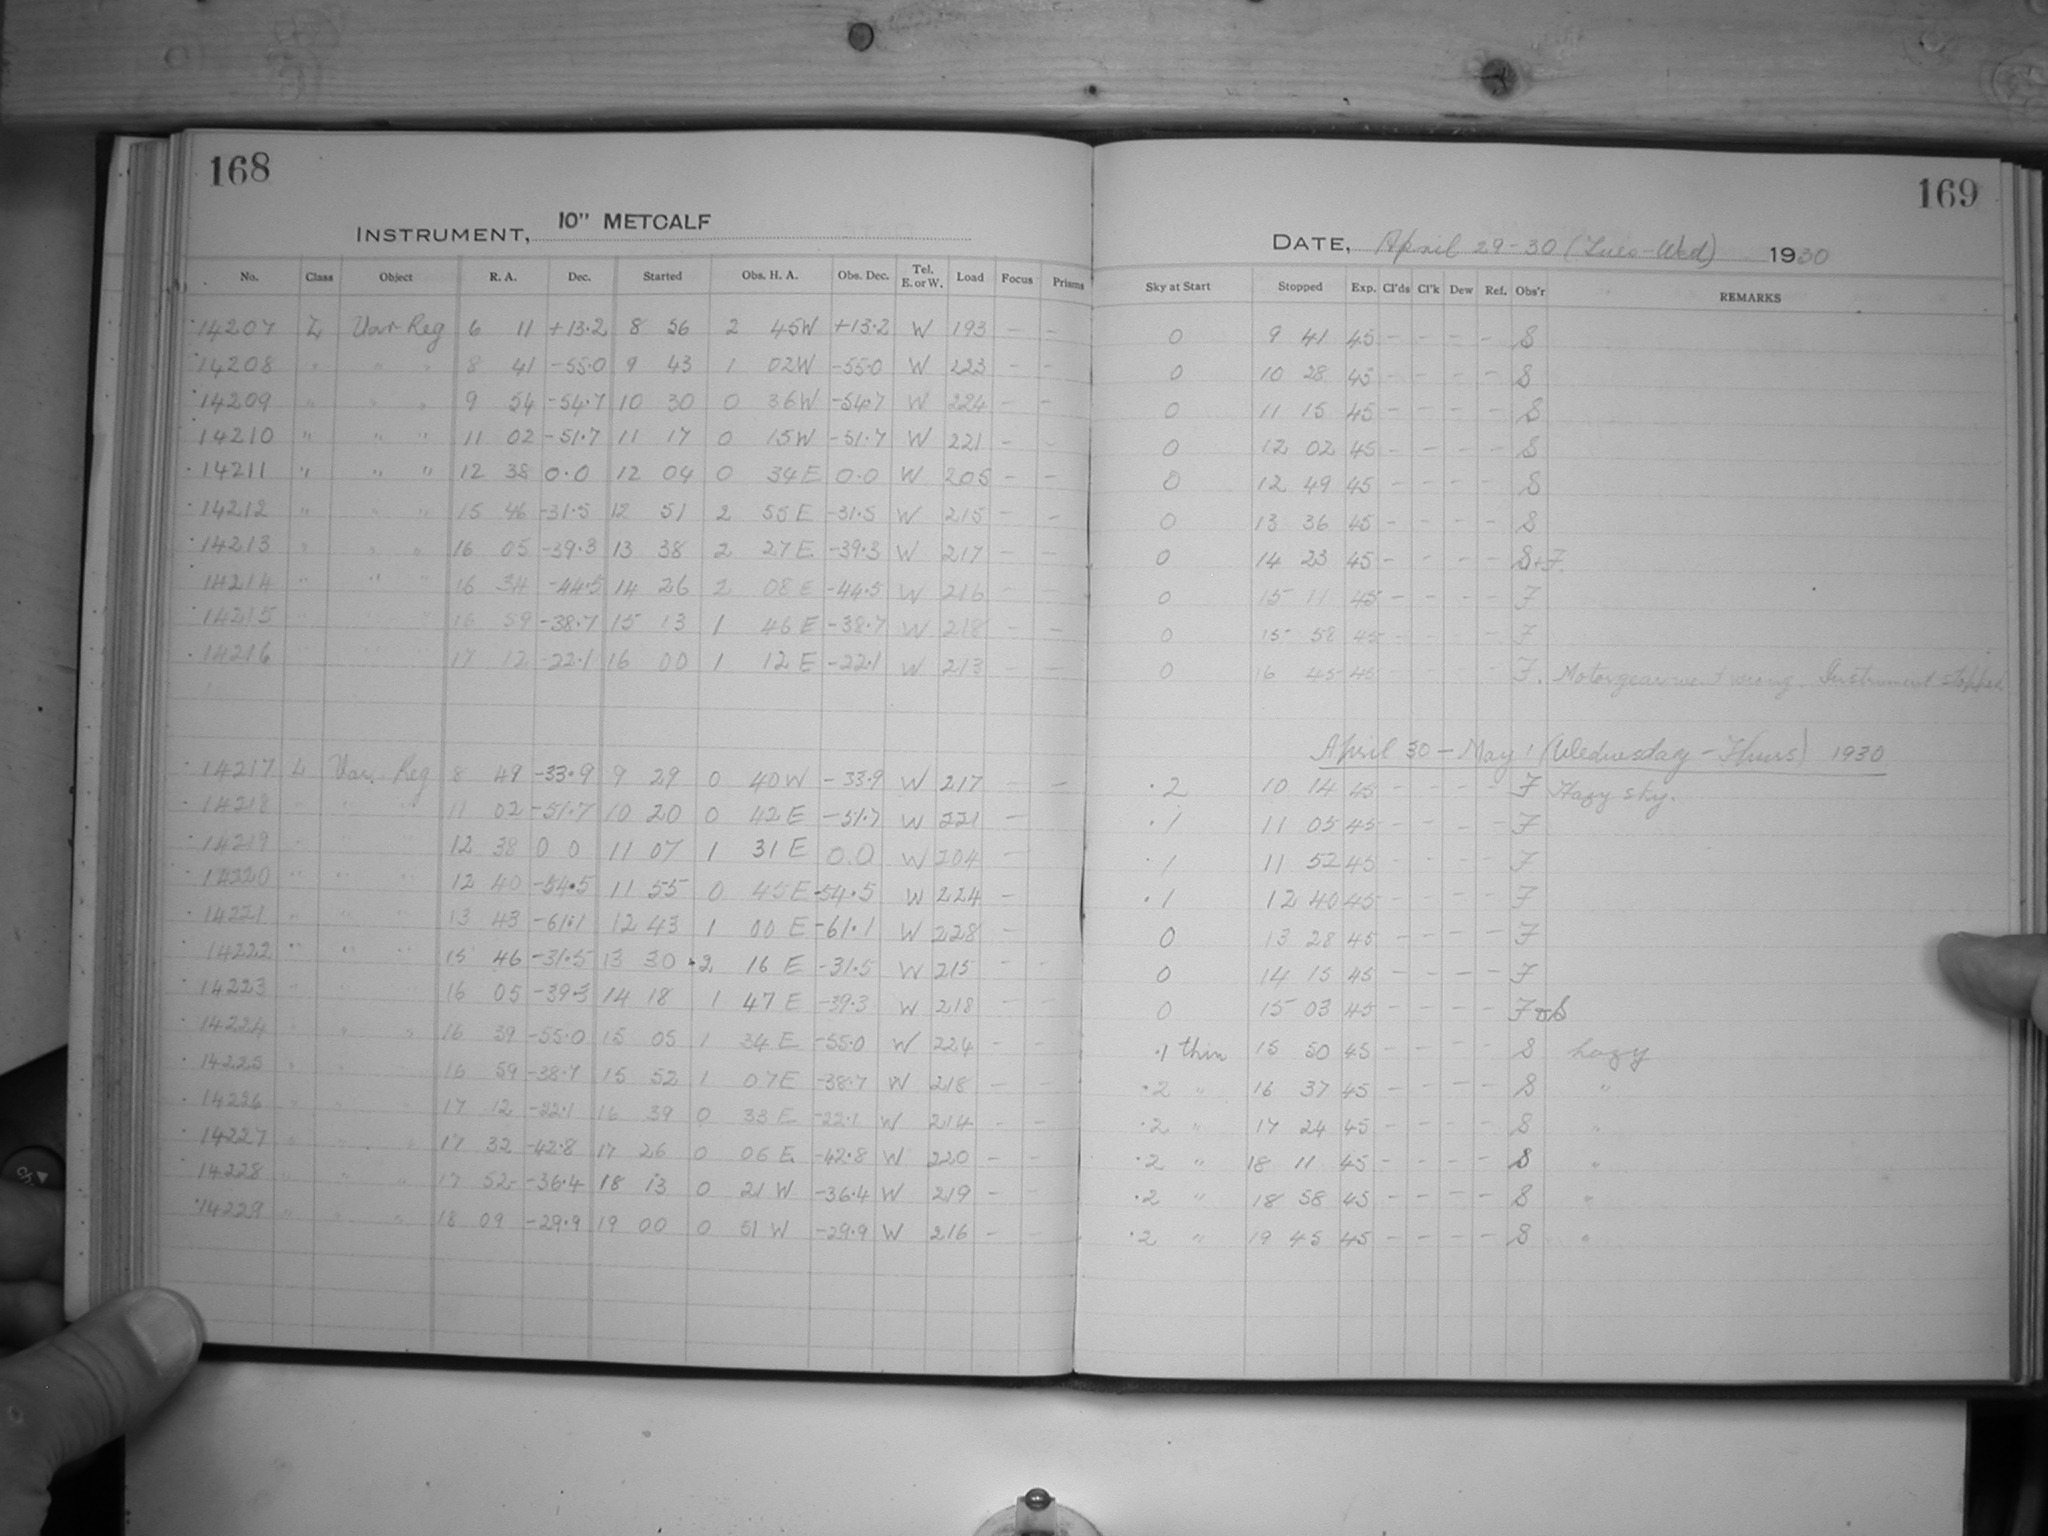 168
INSTRUMENT, 10" METCALF
No. Class Object R. A. Dec. Started Obs. H. A. Obs. Dec. Tel. E. or W. Load Focus Prisms
14207 L Var Reg 6 11 +13.2 8 56 2 45W +13.2 W 193 - -
14208 " " " 8 41 -55.0 9 43 1 02W -55.0 W 223 - -
14209 " " " 9 54 -54.7 10 30 0 36W -54.7 W 224 - -
14210 " " " 11 02 -51.7 11 17 0 15W -51.7 W 221 - -
14211 " " " 12 38 0.0 12 04 0 34E 0.0 W 205 - -
14212 " " " 15 46 -31.5 12 51 2 55E -31.5 W 215 - -
14213 " " " 16 05 -39.3 13 38 2 27E -39.3 W 217 - -
14214 " " " 16 34 -44.5 14 26 2 08E -44.5 W 216 - -
14215 " " " 16 59 -38.7 15 13 1 46E -38.7 W 218 - -
14216 " " " 17 12 -22.1 16 00 1 12E -22.1 W 213 - -
14217 L Var. Reg 8 49 -33.9 9 29 0 40W -33.9 W 217 - -
14218 " " " 11 02 -51.7 10 20 0 42E -51.7 W 221 -
14219 " " " 12 38 0 0 11 07 1 31E 0.0 W 204 -
14220 " " " 12 40 -54.5 11 55 0 45E -54.5 W 224 -
14221 " " " 13 43 -61.1 12 43 1 00E -61.1 W 228 -
14222 " " " 15 46 -31.5 13 30 2 16E -31.5 W 215 - -
14223 " " " 16 05 -39.3 14 18 1 47E -39.3 W 218 - -
14224 " " " 16 39 -55.0 15 05 1 34E -55.0 W 224 - -
14225 " " " 16 59 -38.7 15 52 1 07E -38.7 W 218 - -
14226 " " " 17 12 -22.1 16 39 0 33E -22.1 W 214 - -
14227 " " " 17 32 -42.8 17 26 0 06E -42.8 W 220 - -
14228 " " " 17 52 -36.4 18 13 0 21W -36.4 W 219 - -
14229 " " " 18 09 -29.9 19 00 0 51W -29.9 W 216 - -
169
DATE, April 29-30 (Tues-Wed) 1930
Sky at Start Stopped Exp. Cl'ds Cl'k Dew Ref. Obs'r REMARKS
0 9 41 45 - - - - S
0 10 28 45 - - - - S
0 11 15 45 - - - - S
0 12 02 45 - - - - S
0 12 49 45 - - - - S
0 13 36 45 - - - - S
0 14 23 45 - - - - S+F.
0 15 11 45 - - - - F
0 15 58 45 - - - - F
0 16 45 45 - - - - F. Motorgear went wrong. Instrument stopped.
April 30 - May 1 (Wednesday - Thurs) 1930
.2 10 14 45 - - - - F Hazy sky.
.1 11 05 45 - - - - F
.1 11 52 45 - - - - F
.1 12 40 45 - - - - F
0 13 28 45 - - - - F
0 14 15 45 - - - - F
0 15 03 45 - - - - F & S
.1 thin 15 50 45 - - - - S hazy
.2 " 16 37 45 - - - - S "
.2 " 17 24 45 - - - - S "
.2 " 18 11 45 - - - - S "
.2 " 18 58 45 - - - - S "
.2 " 19 45 45 - - - - S "